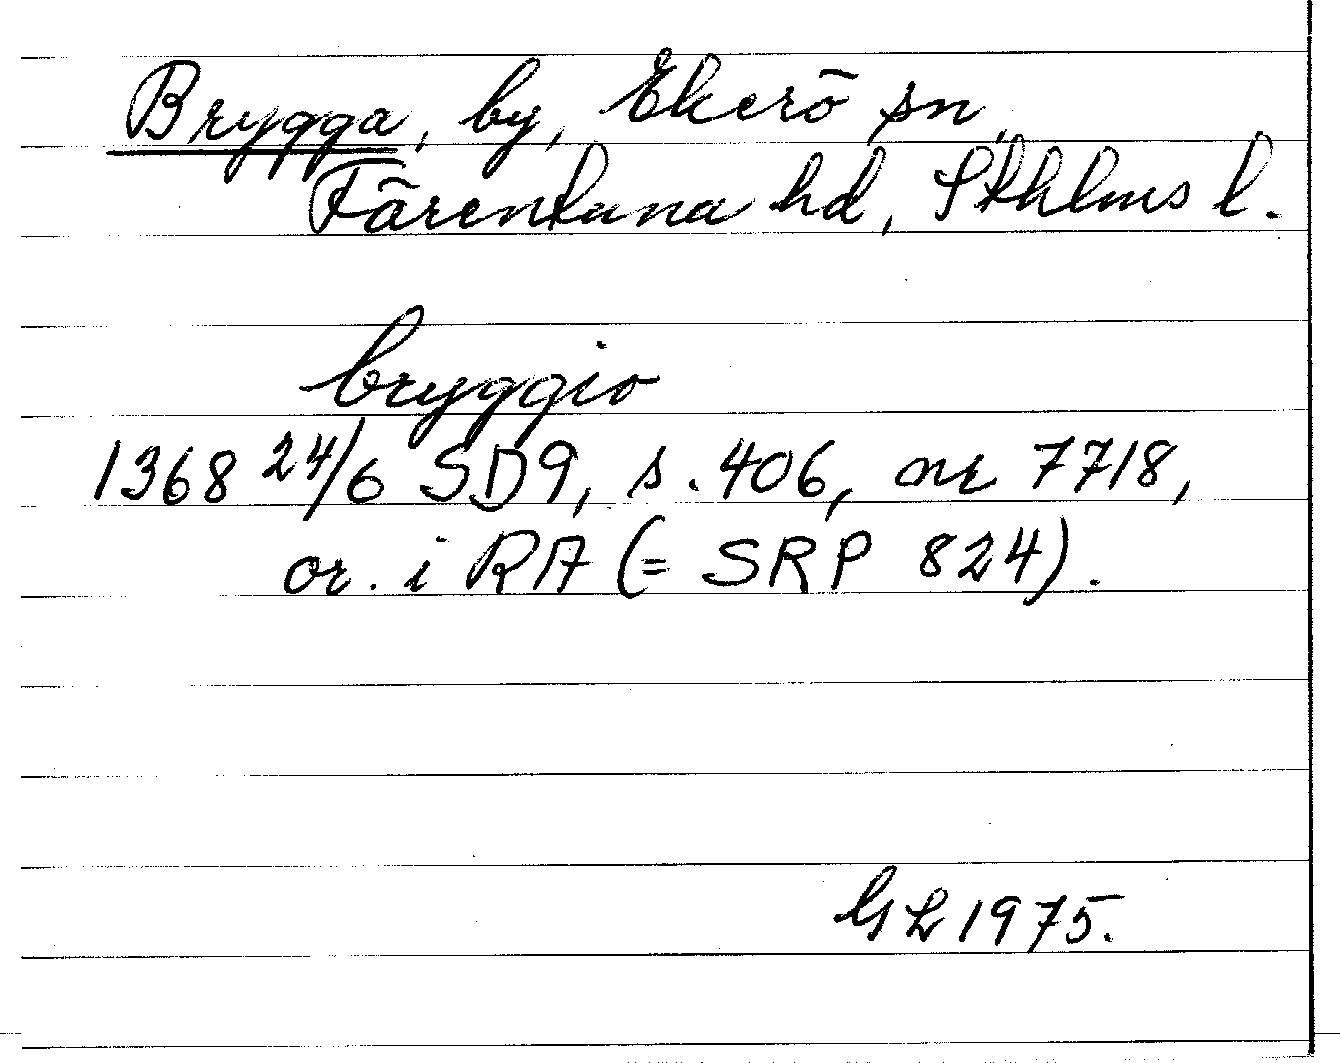 Brygga, by, Ekerö sn,
Färentuna hd, Sthlms l.
bryggio
1368 24/6 SD9, s. 406, nr 7718,
or. i RA (= SRP 824).
GL 1975.